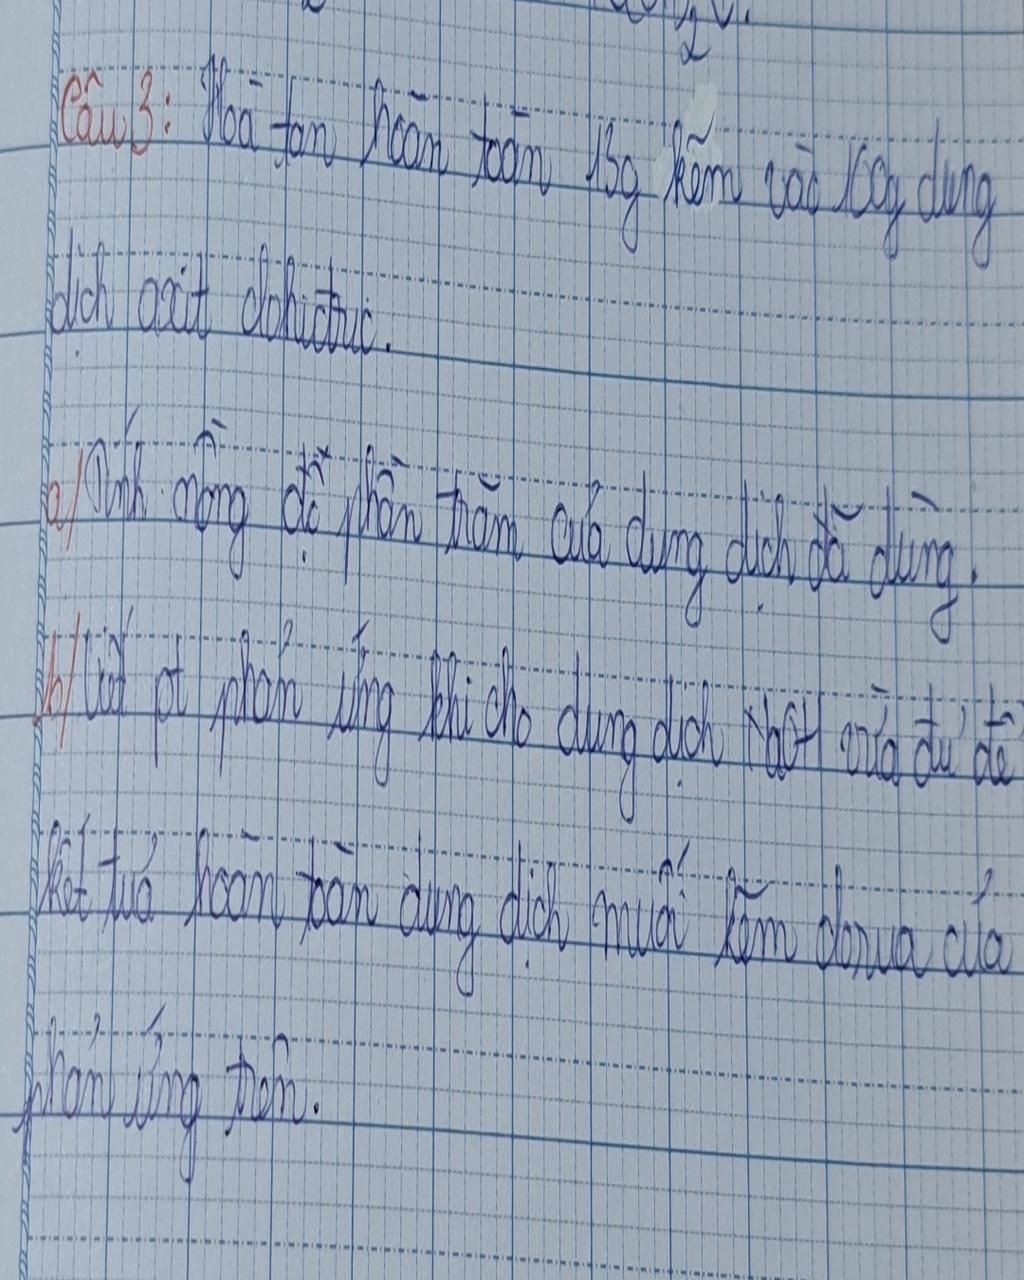 Câu 3: Hoà tan hoàn toàn 13g kẽm vào 100g dung
dịch axit clohiđric.
a/ Tính nồng độ phần trăm của dung dịch đã dùng.
b/ Viết pt phản ứng khi cho dung dịch NaOH vừa đủ để
kết tủa hoàn toàn dung dịch muối kẽm clorua của
phản ứng trên.